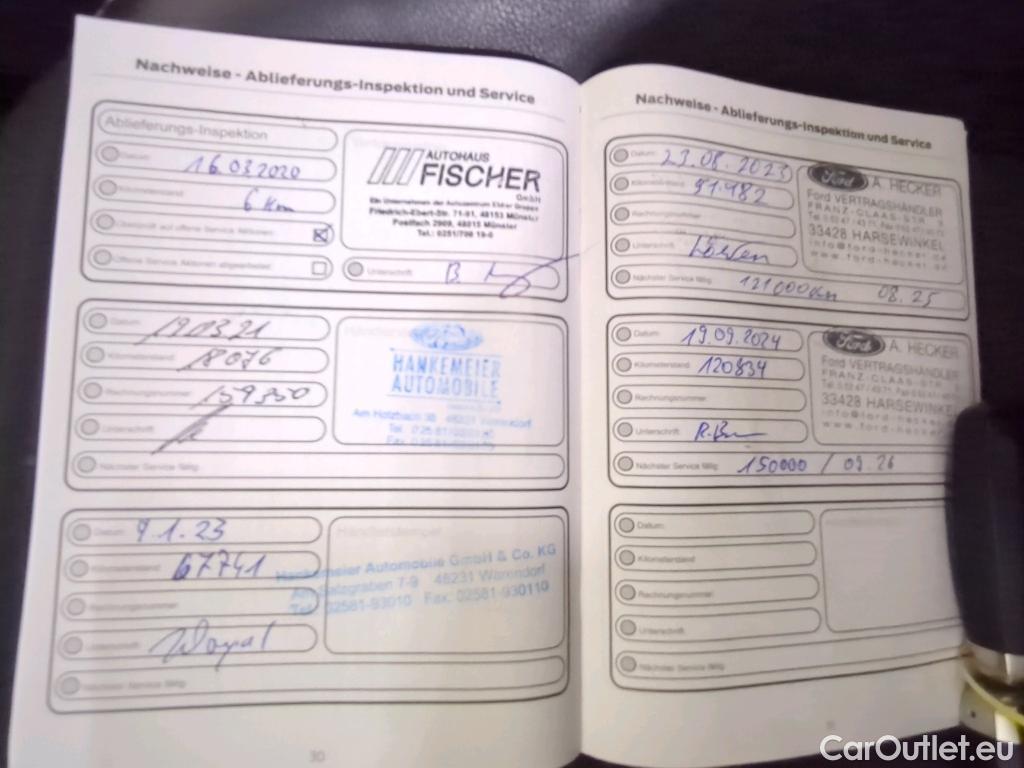 Nachweise - Ablieferungs-Inspektion und Service
Ablieferungs-Inspektion
Datum: 16.03.2020
Kilometerstand 6 Km
Offene Service Aktionen abgearbeitet:
AUTOHAUS
FISCHER
GmbH
Ein Unternehmen der Autozentrum Gruppe
Friedrich-Ebert-Str. 71-91, 48153 Münster
Postfach 2909, 48015 Münster
Tel.: 0251/708 19-0
Unterschrift B.
Datum: 19.03.21
Kilometerstand 18076
Rechnungsnummer 159350
Unterschrift
Nächster Service fällig
HANKEMEIER
AUTOMOBILE
Am Holzbach 38 48231 Warendorf
Tel.
Fax
Datum: 9.1.23
Kilometerstand 67741
Rechnungsnummer
Unterschrift
Nächster Service fällig
Händlerstempel
Hankemeier Automobile GmbH & Co. KG
Am Salzgraben 7-9 48231 Warendorf
Tel. 02581-93010 Fax: 02581-930110
30
Nachweise - Ablieferungs-Inspektion und Service
Datum: 23.08.2023
Kilometerstand 91.982
Rechnungsnummer
Unterschrift
Nächster Service fällig 121000Km 08.25
Ford A. HECKER
Ford VERTRAGSHÄNDLER
FRANZ-CLAAS-STR.
33428 HARSEWINKEL
info@ford-hecker.de
www.ford-hecker.de
Datum: 19.09.2024
Kilometerstand 120834
Rechnungsnummer
Unterschrift
Nächster Service fällig 150000 / 09.26
Ford A. HECKER
Ford VERTRAGSHÄNDLER
FRANZ-CLAAS-STR.
33428 HARSEWINKEL
Datum:
Kilometerstand
Rechnungsnummer
Unterschrift
Nächster Service fällig
CarOutlet.eu